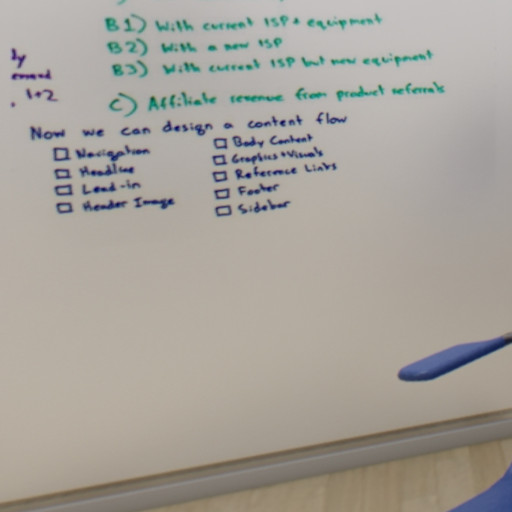 B1) With current ISP + equipment
B2) With a new ISP
B3) With current ISP but new equipment
by
1+2
C) Affiliate revenue from product referrals
Now we can design a content flow
Navigation
Headline
Lead-in
Header Image
Body Content
Graphics + Visuals
Reference Links
Footer
Sidebar